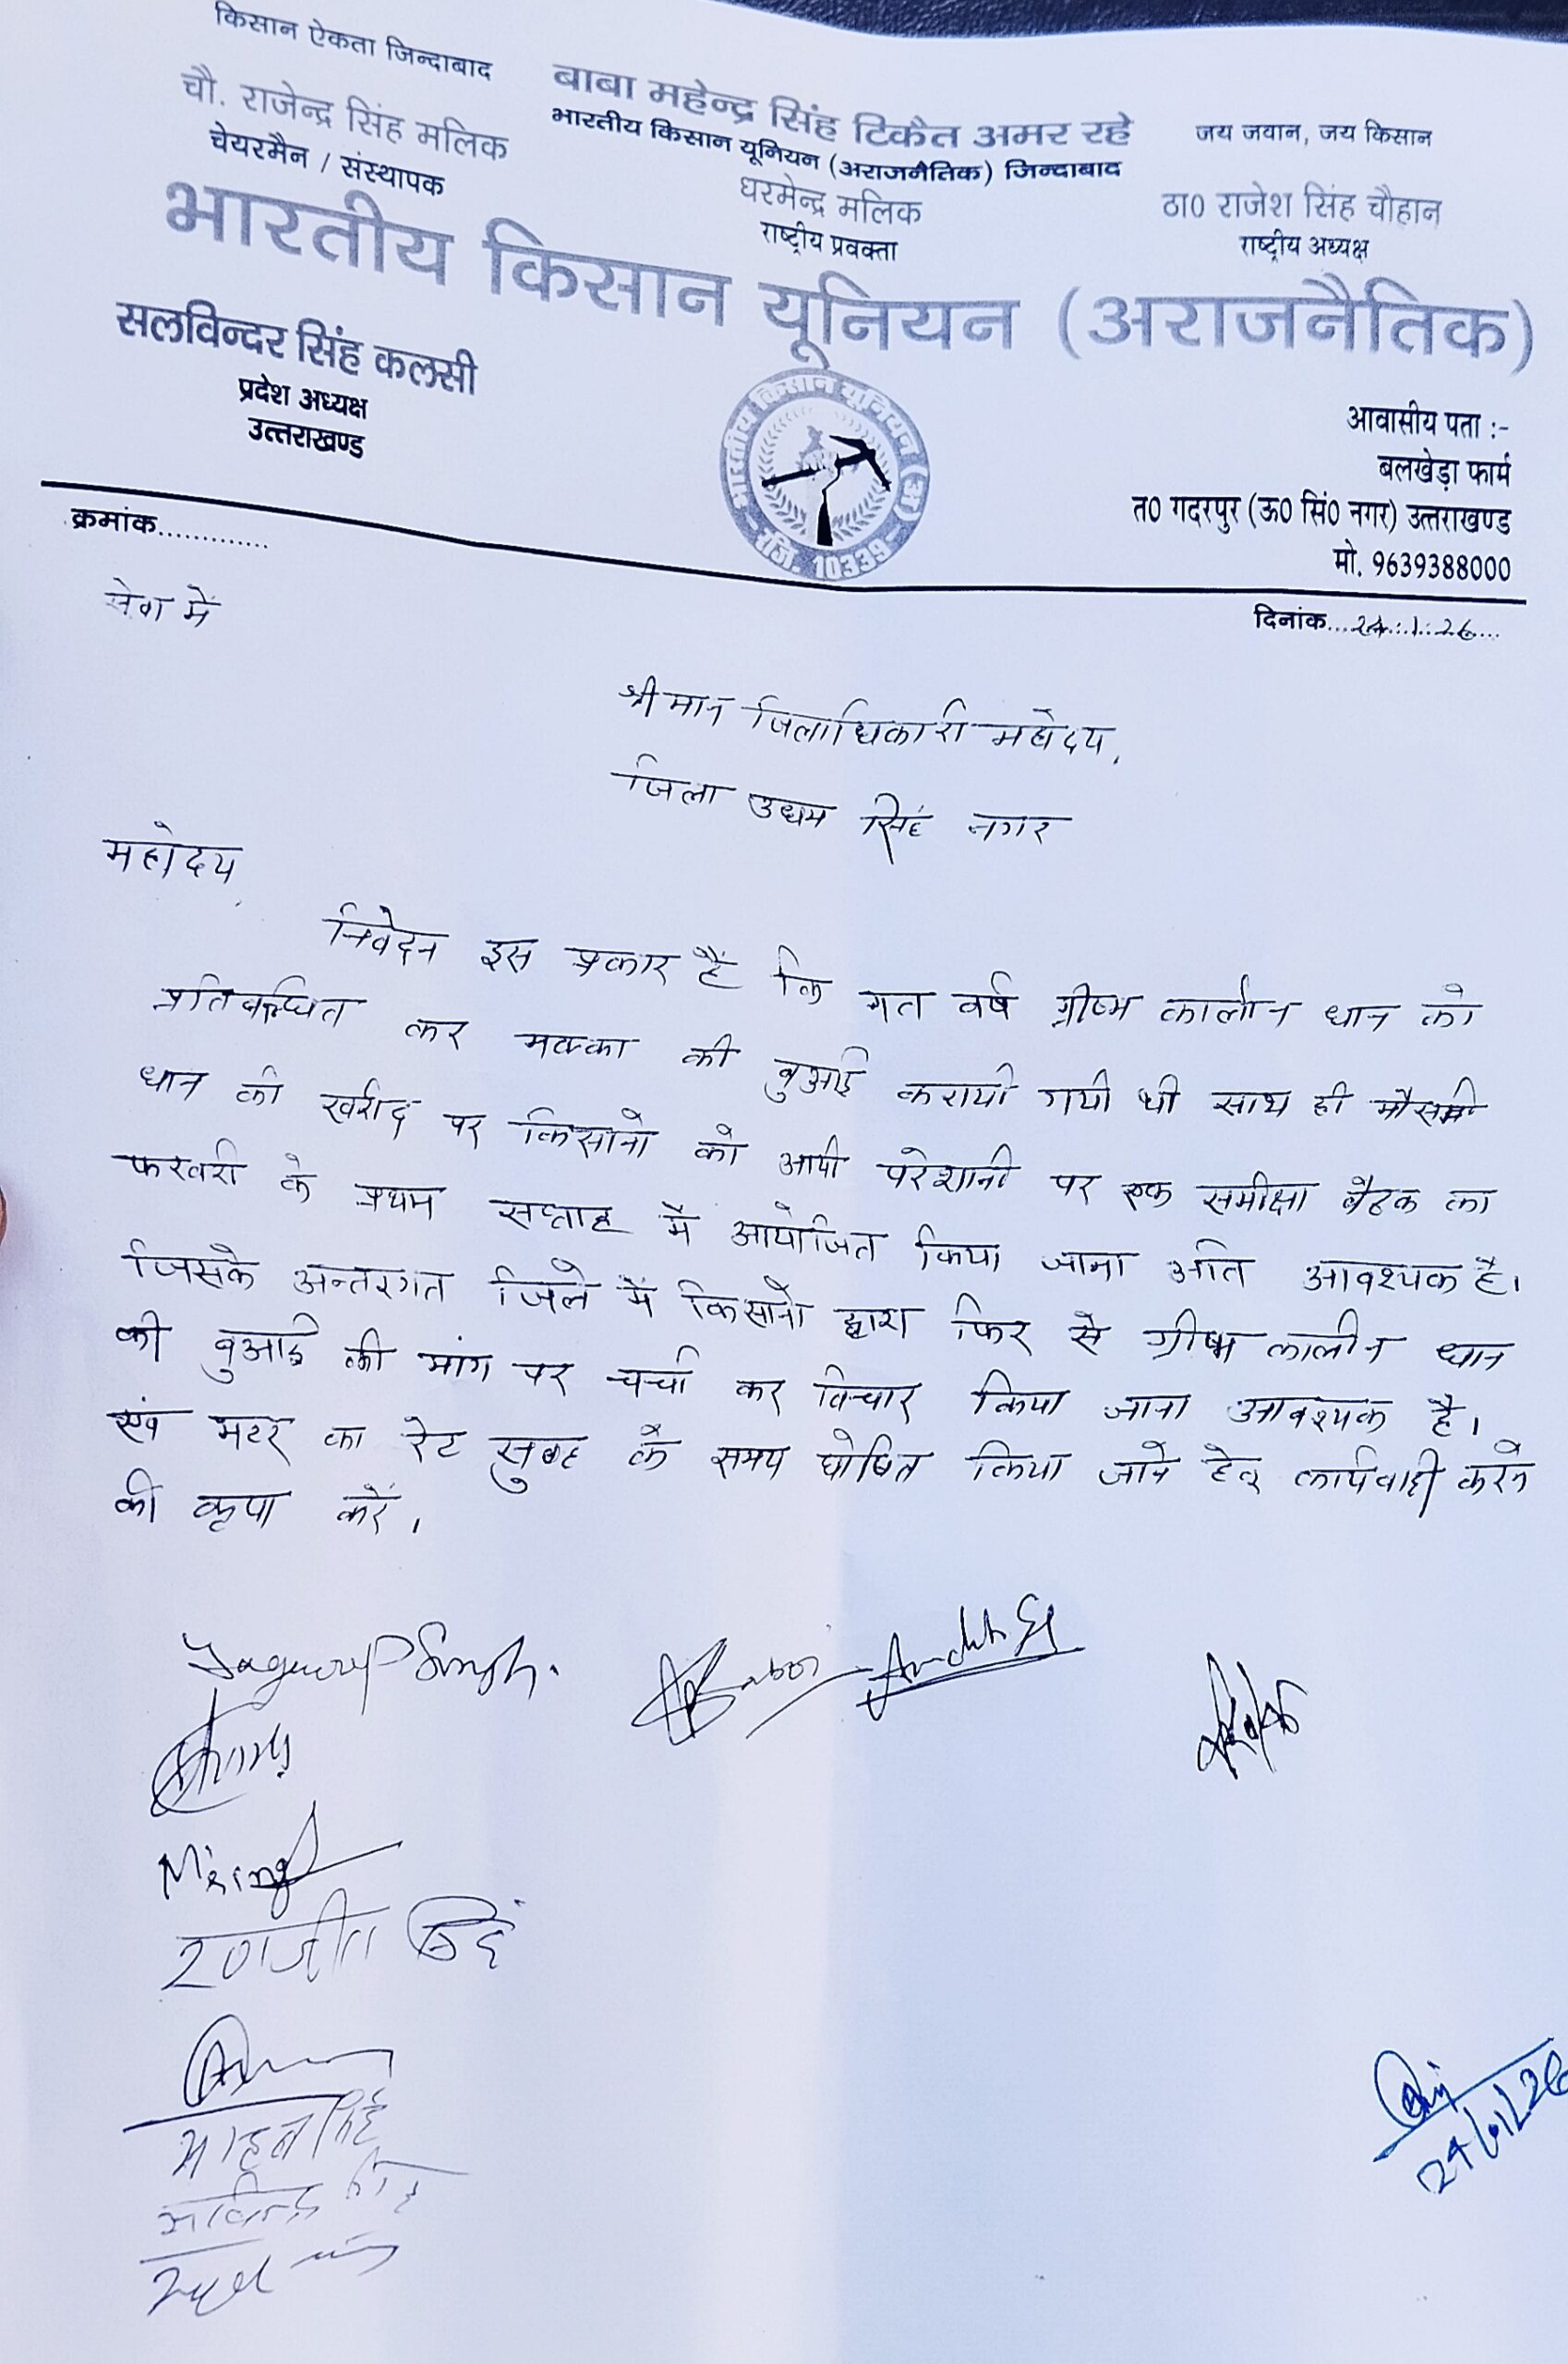 किसान ऐकता जिन्दाबाद
बाबा महेन्द्र सिंह टिकैत अमर रहे
जय जवान, जय किसान
भारतीय किसान यूनियन (अराजनैतिक) जिन्दाबाद
चौ. राजेन्द्र सिंह मलिक
चेयरमैन / संस्थापक
धरमेन्द्र मलिक
राष्ट्रीय प्रवक्ता
ठा0 राजेश सिंह चौहान
राष्ट्रीय अध्यक्ष
भारतीय किसान यूनियन (अराजनैतिक)
सलविन्दर सिंह कलसी
प्रदेश अध्यक्ष
उत्तराखण्ड
भारतीय किसान यूनियन (अ)
रजि. 10339
आवासीय पता :-
बलखेड़ा फार्म
त0 गदरपुर (ऊ0 सिं0 नगर) उत्तराखण्ड
मो. 9639388000
क्रमांक.............
दिनांक...24.1.26...
सेवा में
श्रीमान जिलाधिकारी महोदय,
जिला उधम सिंह नगर
महोदय,
निवेदन इस प्रकार है कि गत वर्ष ग्रीष्म कालीन धान को
प्रतिबन्धित कर मक्का की बुआई करायी गयी थी साथ ही मौसमी
धान की खरीद पर किसानो को आयी परेशानी पर एक समीक्षा बैठक का
फरवरी के प्रथम सप्ताह में आयोजित किया जाना अति आवश्यक है।
जिसके अन्तरगत जिले में किसानो द्वारा फिर से ग्रीष्म कालीन धान
की बुआई की मांग पर चर्चा कर विचार किया जाना आवश्यक है।
एंव मटर का रेट सुबह के समय घोषित किया जाने हेतु कार्यवाही करने
की कृपा करें।
रणजीत सिंह
24/01/26